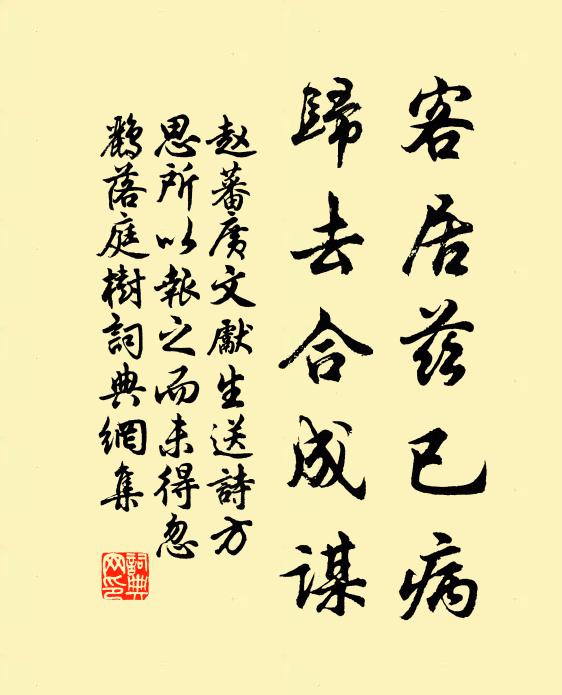 客居茲已病
歸去合成謀
赵蕃廣文獻生送詩方
思所以報之而未得忽
鸛落庭樹詞典網集
詞典
网印